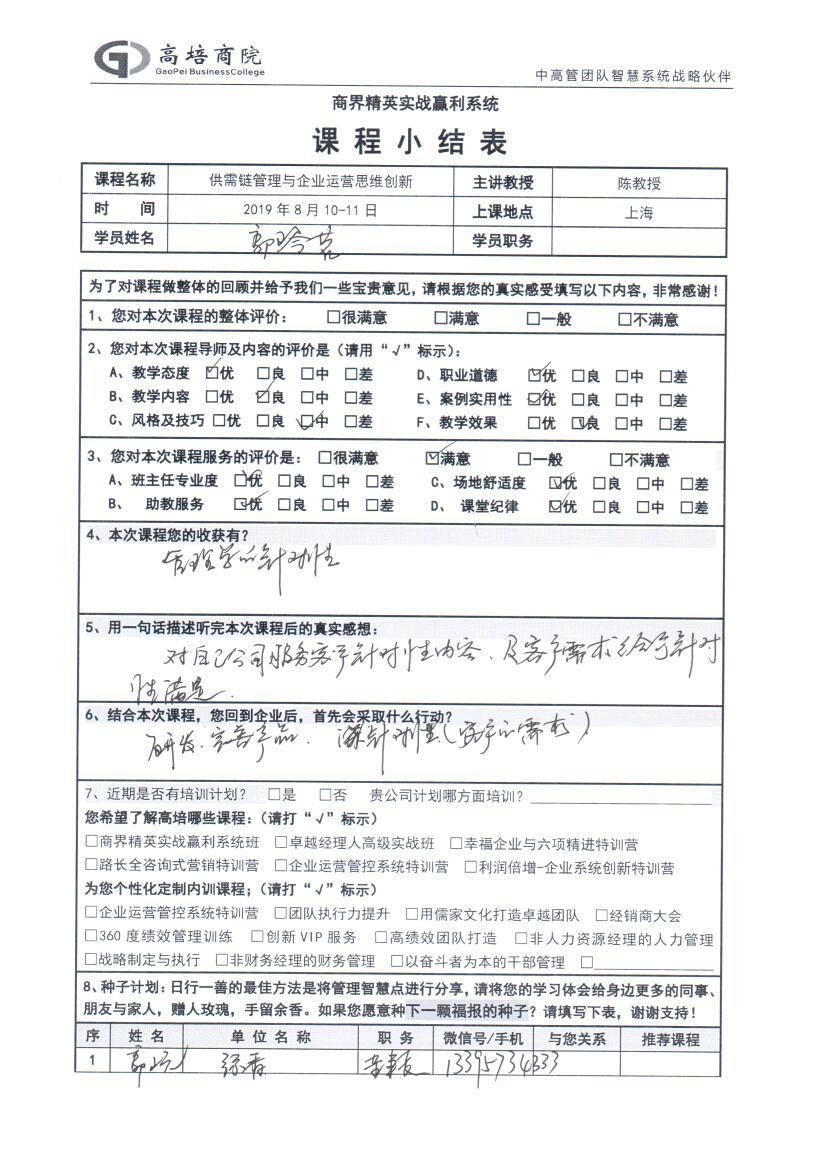 高培商院
GaoPei BusinessCollege
中高管团队智慧系统战略伙伴
商界精英实战赢利系统
课程小结表
课程名称 供需链管理与企业运营思维创新 主讲教授 陈教授
时 间 2019年8月10-11日 上课地点 上海
学员姓名 学员职务
为了对课程做整体的回顾并给予我们一些宝贵意见，请根据您的真实感受填写以下内容，非常感谢！
1、您对本次课程的整体评价： □很满意 □满意 □一般 □不满意
2、您对本次课程导师及内容的评价是（请用“√”标示）：
A、教学态度 ☑优 □良 □中 □差 D、职业道德 ☑优 □良 □中 □差
B、教学内容 □优 ☑良 □中 □差 E、案例实用性 ☑优 □良 □中 □差
C、风格及技巧 □优 □良 ☑中 □差 F、教学效果 □优 ☑良 □中 □差
3、您对本次课程服务的评价是： □很满意 ☑满意 □一般 □不满意
A、班主任专业度 ☑优 □良 □中 □差 C、场地舒适度 ☑优 □良 □中 □差
B、 助教服务 ☑优 □良 □中 □差 D、 课堂纪律 ☑优 □良 □中 □差
4、本次课程您的收获有？
管理学的针对性
5、用一句话描述听完本次课程后的真实感想：
对自己公司服务客户针对性内容、及客户需求给予针对
性满足.
6、结合本次课程，您回到企业后，首先会采取什么行动？
研发、完善产品. 针对性(客户的需求)
7、近期是否有培训计划？ □是 □否 贵公司计划哪方面培训？
您希望了解高培哪些课程：（请打“√”标示）
□商界精英实战赢利系统班 □卓越经理人高级实战班 □幸福企业与六项精进特训营
□路长全咨询式营销特训营 □企业运营管控系统特训营 □利润倍增-企业系统创新特训营
为您个性化定制内训课程；（请打“√”标示）
□企业运营管控系统特训营 □团队执行力提升 □用儒家文化打造卓越团队 □经销商大会
□360度绩效管理训练 □创新VIP服务 □高绩效团队打造 □非人力资源经理的人力管理
□战略制定与执行 □非财务经理的财务管理 □以奋斗者为本的干部管理 □
8、种子计划：日行一善的最佳方法是将管理智慧点进行分享，请将您的学习体会给身边更多的同事、
朋友与家人，赠人玫瑰，手留余香。如果您愿意种下一颗福报的种子？请填写下表，谢谢支持！
序 姓名 单位名称 职务 微信号/手机 与您关系 推荐课程
1 董事长 13395734333